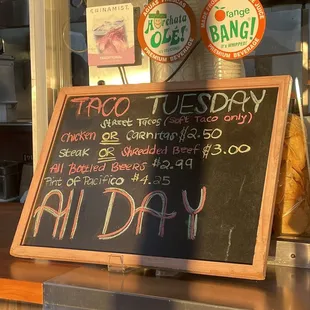 CHINAMIST
Horchata
OLÉ!
PREMIUM BEVERAGE
orange
BANG!
it's WHIPPED!
PREMIUM BEVERAGE
TACO TUESDAY
STREET TACOS (Soft TACO only)
Chicken OR Carnitas $2.50
Steak OR Shredded Beef $3.00
All Bottled Beers $2.99
Pint of Pacifico $4.25
All DAY